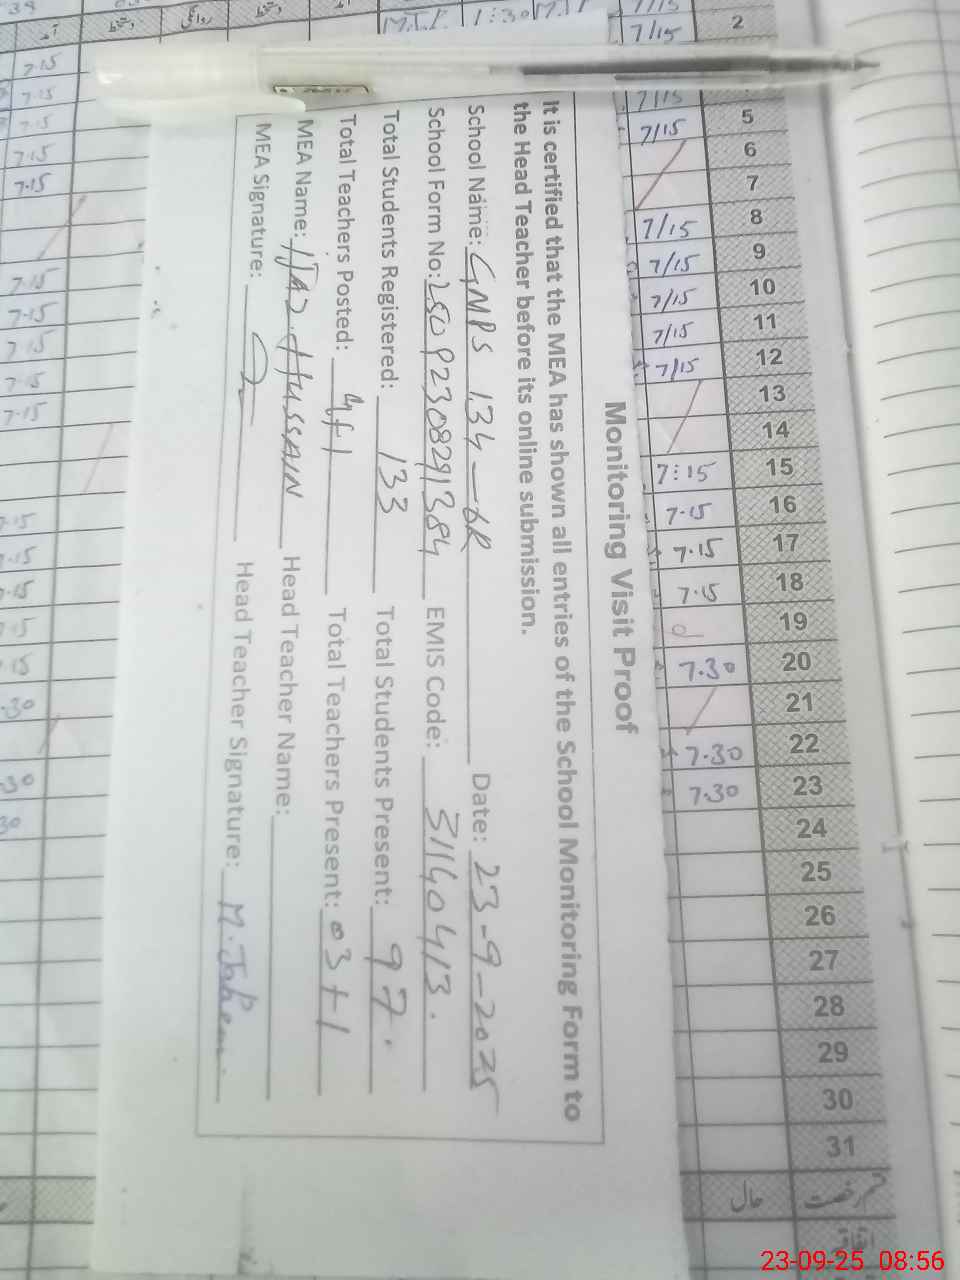 Monitoring Visit Proof
It is certified that the MEA has shown all entries of the School Monitoring Form to
the Head Teacher before its online submission.
School Name: GMPS 134-6R Date: 23-9-2025
School Form No: 25092308291384 EMIS Code: 31140413.
Total Students Registered: 133 Total Students Present: 97.
Total Teachers Posted: 4+1 Total Teachers Present: 03+1
MEA Name: IJAZ HUSSAIN Head Teacher Name:
MEA Signature: Head Teacher Signature:
2
7/15
5 7/15
6
7
8 7/15
9 7/15
10 7/15
11 7/15
12 7/15
13
14
15 7:15
16 7.15
17 7.15
18 7.15
19
20 7.30
21
22 7.30
23 7.30
24
25
26
27
28
29
30
31
حال
7.15
7.15
7.15
7.15
7.15
7.15
7.15
7.15
7.15
7.15
23-09-25 08:56